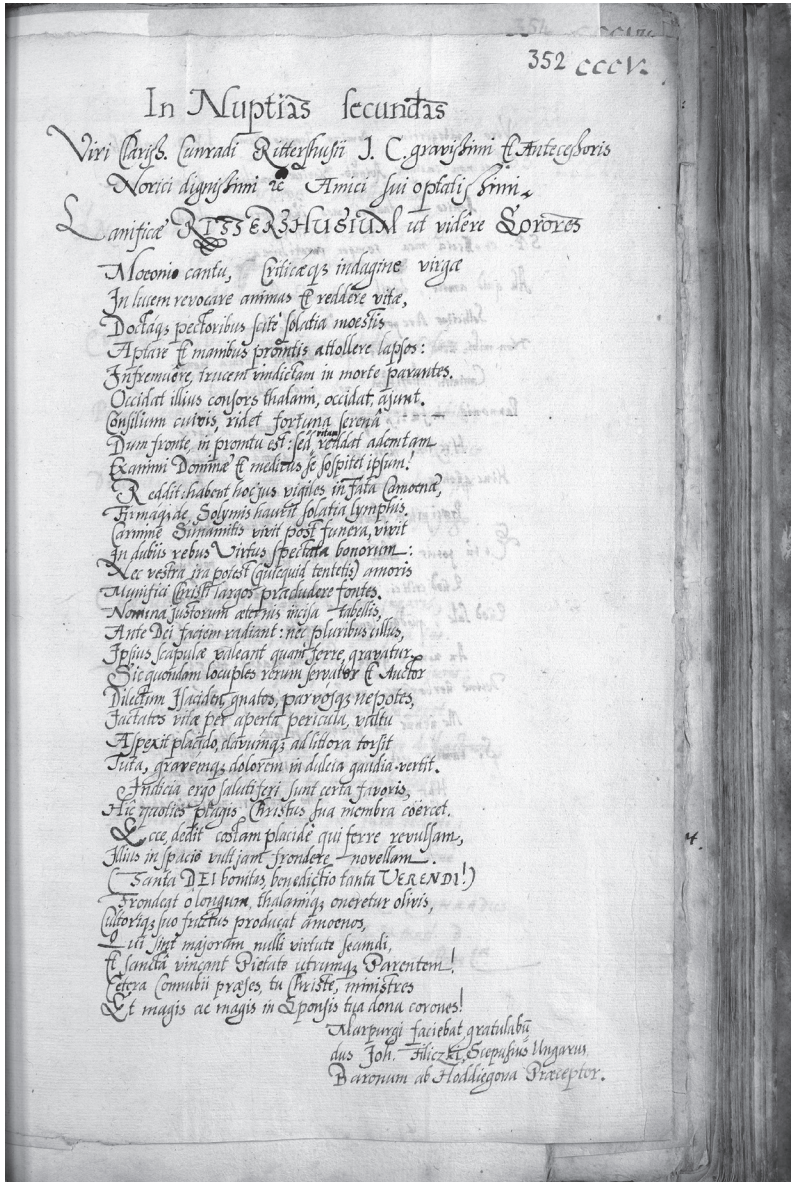 352 CCCVI.
In Nuptias secundas
Viri Clariss. Cunradi Rittershusii J. C. gravissimi & Antecessoris
Norici dignissimi &c Amici sui optatissimi.
Lanificæ RITTERSHUSIUM ut vidêre Sorores
Mœonio cantu, Criticæq; indagine virgæ
In lucem revocare animas & reddere vitæ,
Doctaq; pectoribus scitè solatia moestis
Aptare & manibus promtis attollere lapsos:
Infremuêre, trucem vindictam in morte parantes.
Occidat illius consors thalami, occidat, ajunt.
Consilium cuivis, ridet fortuna serenâ
Dum fronte, in promtu est: sed vitam reddat ademtam
Exanimi Dominæ & meditus se sospitet ipsum!
Reddit: habent hoc jus vigiles in Fata Camoenæ,
Firmaq; de Solymis haurit solatia lymphis,
Carmine Sunamitis vivit post funera, vivit
In dubiis rebus Virtus spectata bonorum:
Nec vestra ira potest (quicquid tentetis) amoris
Munifici Christi largos præcludere fontes.
Nomina justorum æternis incisa tabellis
Ante Dei faciem radiant: nec pluribus illus,
Ipsius scapulæ valeant quam ferre, gravatur.
Sic quondam locuples rerum servator & Auctor
Dilectum Isaciden, gnatos, parvosq; nepotes,
Jactatos vitæ per aperta pericula, vultu
Aspexit placido, clavumq; ad littora torsit
Tuta, gravemq; dolorem in dulcia gaudia vertit.
Indicia ergo salutiferi sunt certa favoris,
Hîc quoties plagis Christus sua membra coërcet.
Ecce, dedit costam placidè qui ferre revulsam,
Illius in spacio vult jam frondere novellam.
(Tanta DEI bonitas, benedictio tanta VERENDI!)
Frondeat o longum, thalamiq; oneretur olivis,
Cultoriq; suo fructus producat amoenos,
Qui sint majorum nulli virtute secundi,
Et sanctâ vincant Pietate utrumq; Parentem!
Cetera Connubii præses, tu Christe, ministres
Et magis ac magis in Sponsis tua dona corones!
Marpurgi faciebat gratulabū
dus Joh. Filiczki, Scepusius Ungarus,
Baronum ab Hoddiegova Præceptor.